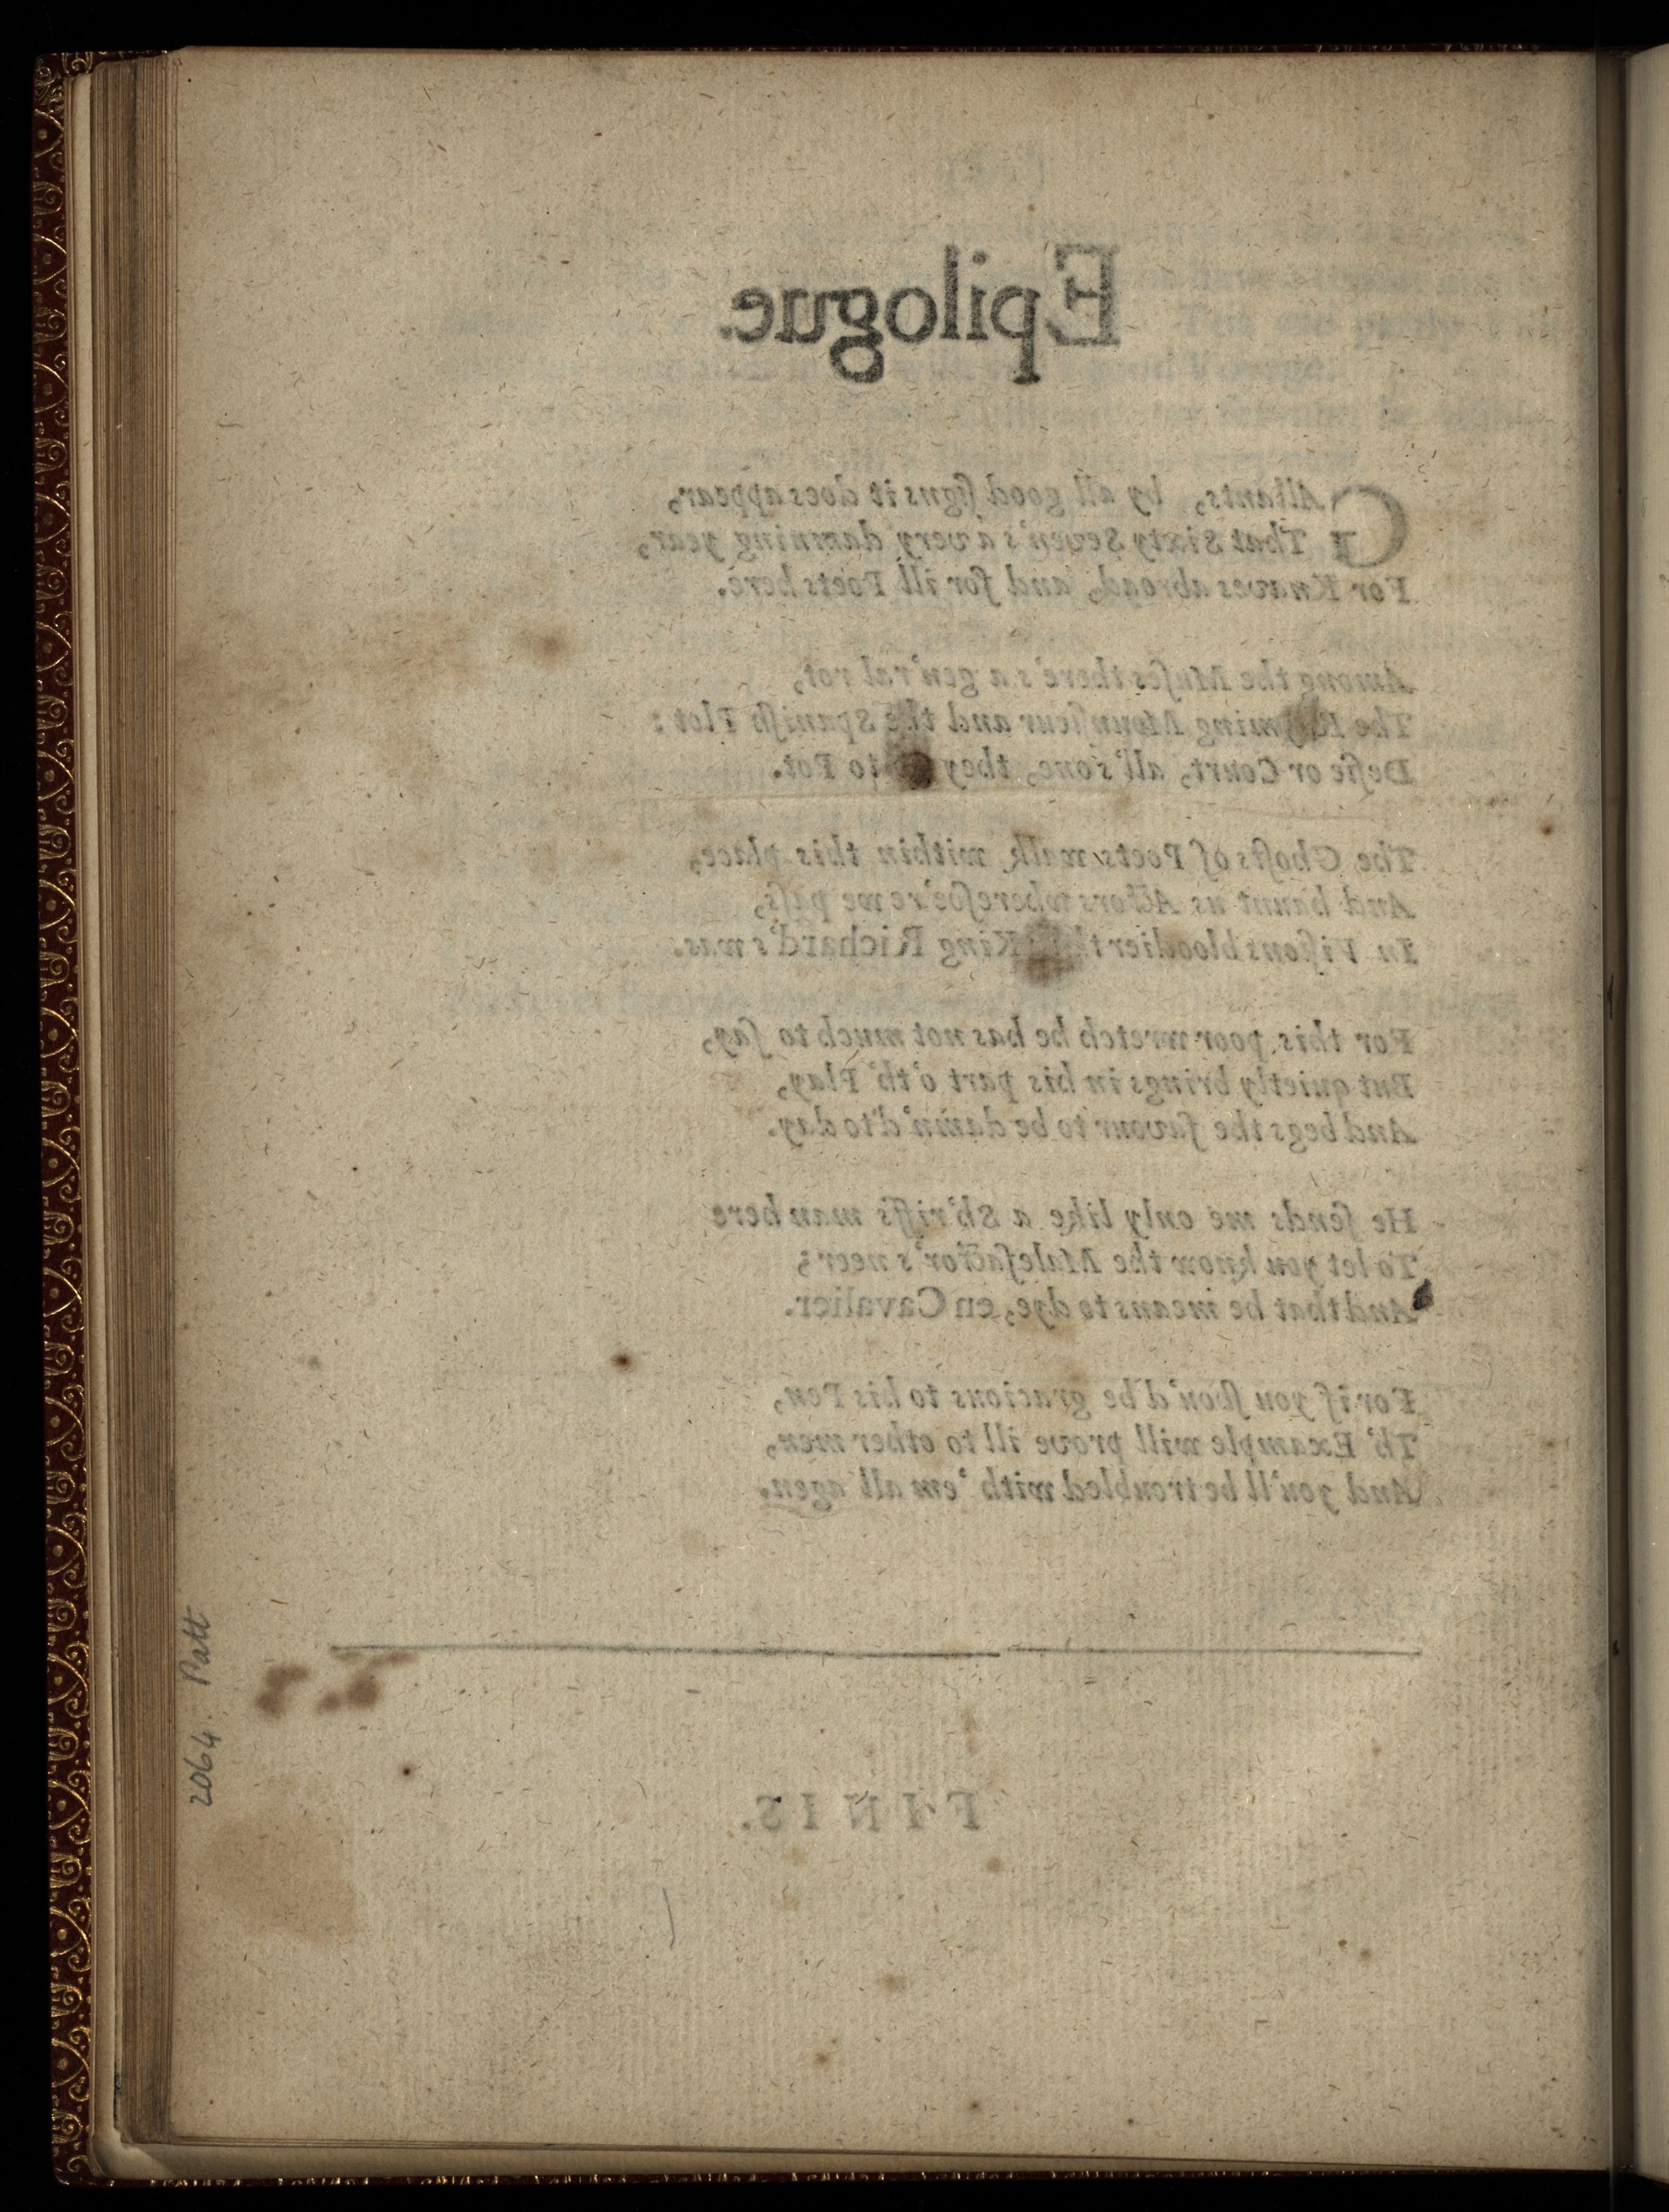 Epilogue.
GAllants, by all good ſigns it does appear,
That Sixty Seven's a very damning year,
For Knaves abroad, and for ill Poets here.
Among the Muſes there's a gen'ral rot,
The Rhyming Mounſieur and the Spaniſh Plot:
Defie or Court, all's one, they to Pot.
The Ghoſts of Poets walk within this place,
And haunt us Actors whereſoe're we paſs,
In Viſions bloodier than King Richard's was.
For this poor wretch he has not much to ſay,
But quietly brings in his part o'th' Play,
And begs the favour to be damn'd to day.
He ſends me only like a Sh'riffs man here
To let you know the Malefactor's neer;
And that he means to dye, en Cavalier.
For if you ſhou'd be gracious to his Pen,
Th' Example will prove ill to other men,
And you'll be troubled with 'em all agen.
FINIS.
2064. Patt